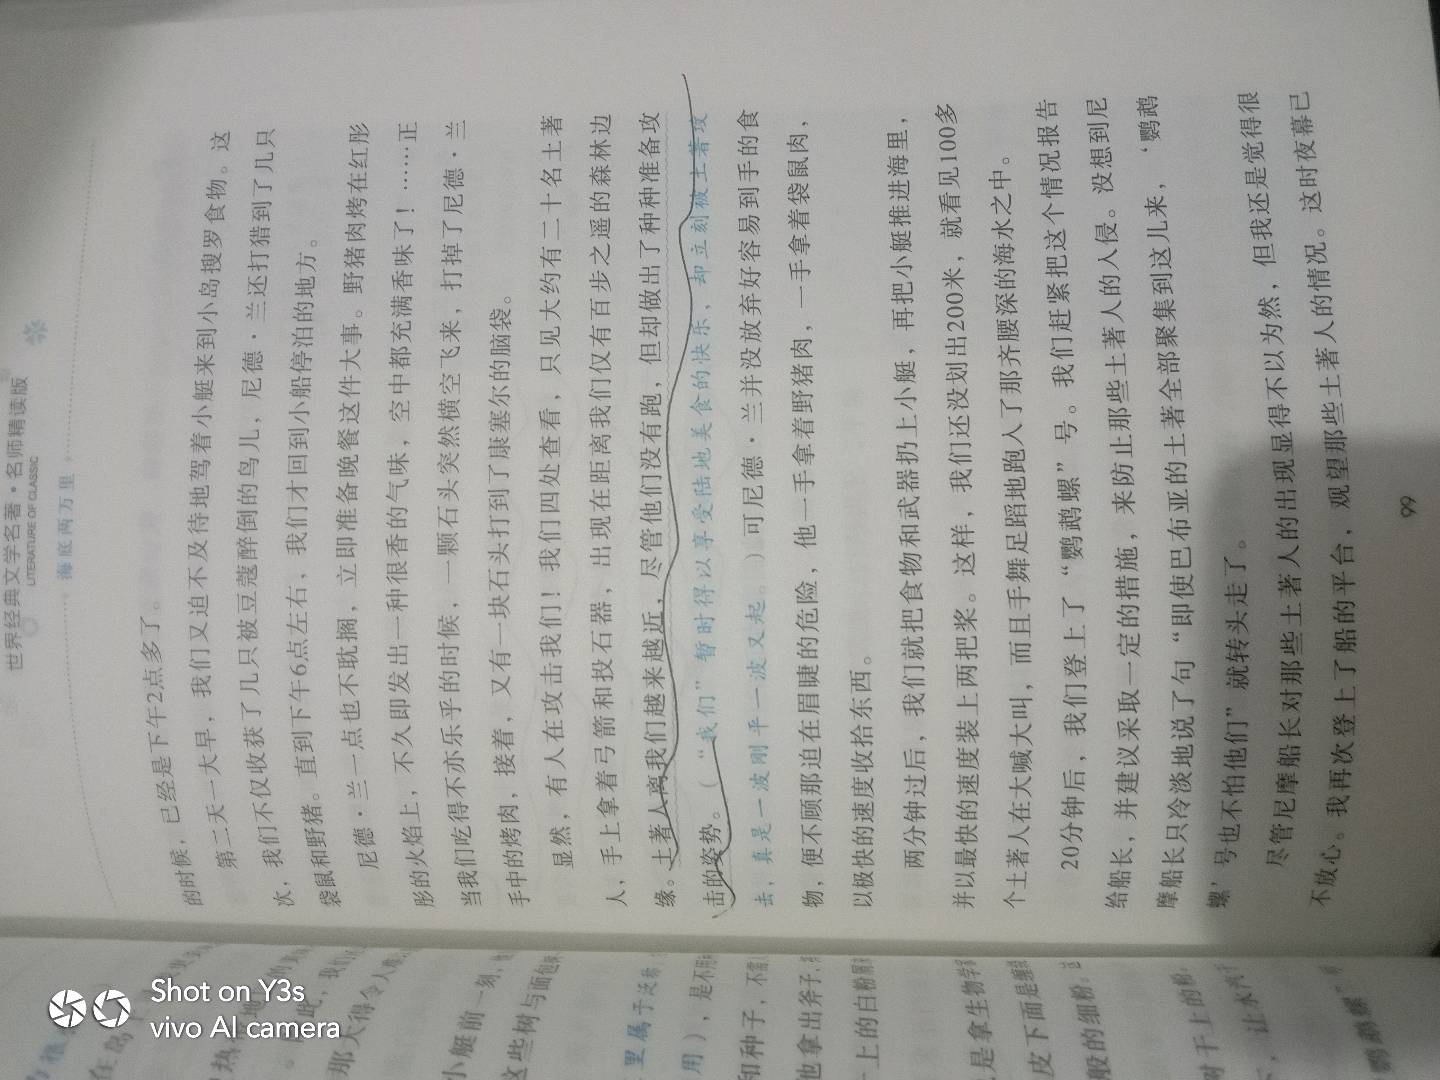 世界经典文学名著·名师精读版
LITERATURE OF CLASSIC
海底两万里
的时候，已经是下午2点多了。
第二天一大早，我们又迫不及待地驾着小艇来到小岛搜罗食物。这
次，我们不仅收获了几只被豆蔻醉倒的鸟儿，尼德·兰还打猎到了几只
袋鼠和野猪。直到下午6点左右，我们才回到小船停泊的地方。
尼德·兰一点也不耽搁，立即准备晚餐这件大事。野猪肉烤在红彤
彤的火焰上，不久即发出一种很香的气味，空中都充满香味了！……正
当我们吃得不亦乐乎的时候，一颗石头突然横空飞来，打掉了尼德·兰
手中的烤肉，接着，又有一块石头打到了康塞尔的脑袋。
显然，有人在攻击我们！我们四处查看，只见大约有二十名土著
人，手上拿着弓箭和投石器，出现在距离我们仅有百步之遥的森林边
缘。土著人离我们越来越近，尽管他们没有跑，但却做出了种种准备攻
击的姿势。（“我们”暂时得以享受陆地美食的快乐，却立刻被土著攻
击，真是一波刚平一波又起。）可尼德·兰并没放弃好容易到手的食
物，便不顾那迫在眉睫的危险，他一手拿着野猪肉，一手拿着袋鼠肉，
以极快的速度收拾东西。
两分钟过后，我们就把食物和武器扔上小艇，再把小艇推进海里，
并以最快的速度装上两把桨。这样，我们还没划出200米，就看见100多
个土著人在大喊大叫，而且手舞足蹈地跑入了那齐腰深的海水之中。
20分钟后，我们登上了“鹦鹉螺”号。我们赶紧把这个情况报告
给船长，并建议采取一定的措施，来防止那些土著人的入侵。没想到尼
摩船长只冷淡地说了句“即使巴布亚的土著全部聚集到这儿来，‘鹦鹉
螺’号也不怕他们”就转头走了。
尽管尼摩船长对那些土著人的出现显得不以为然，但我还是觉得很
不放心。我再次登上了船的平台，观望那些土著人的情况。这时夜幕已
99
在岛
热
那大得令人难
小艇前一刻，
这些树与面包
里属于泛称
用），是不用
和种子，不需
他拿出斧子，
上的白粉
是拿生物学
皮下面是
般的细粉。
对于上的粉
，让水
鹦鹉螺”
Shot on Y3s
vivo AI camera